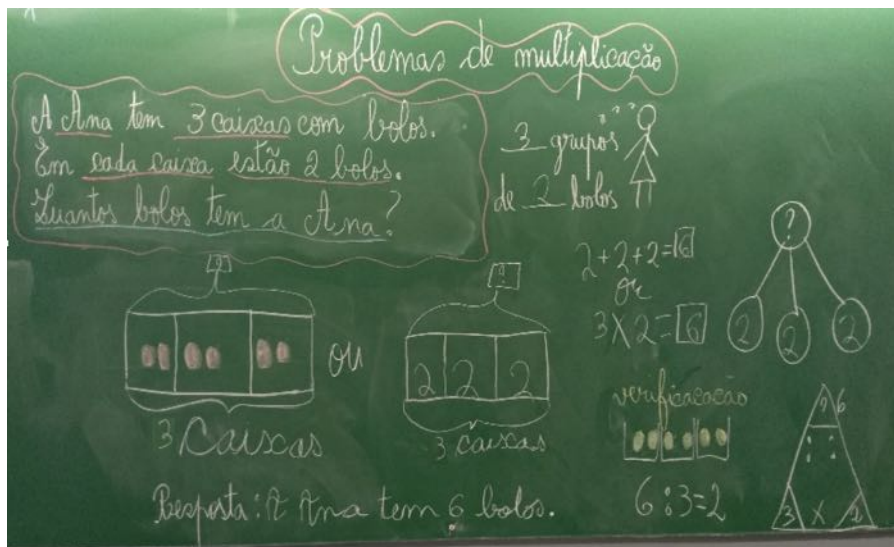 Problemas de multiplicação
A Ana tem 3 caixas com bolos.
Em cada caixa estão 2 bolos.
Quantos bolos tem a Ana?
? ? ?
3 grupos
de 2 bolos
2+2+2=6
or
3X2=6
?
2 2 2
?
ou
3 Caixas
?
2 2 2
3 caixas
verificacação
6:3=2
? 6
: :
3 X 2
Resposta: A Ana tem 6 bolos.